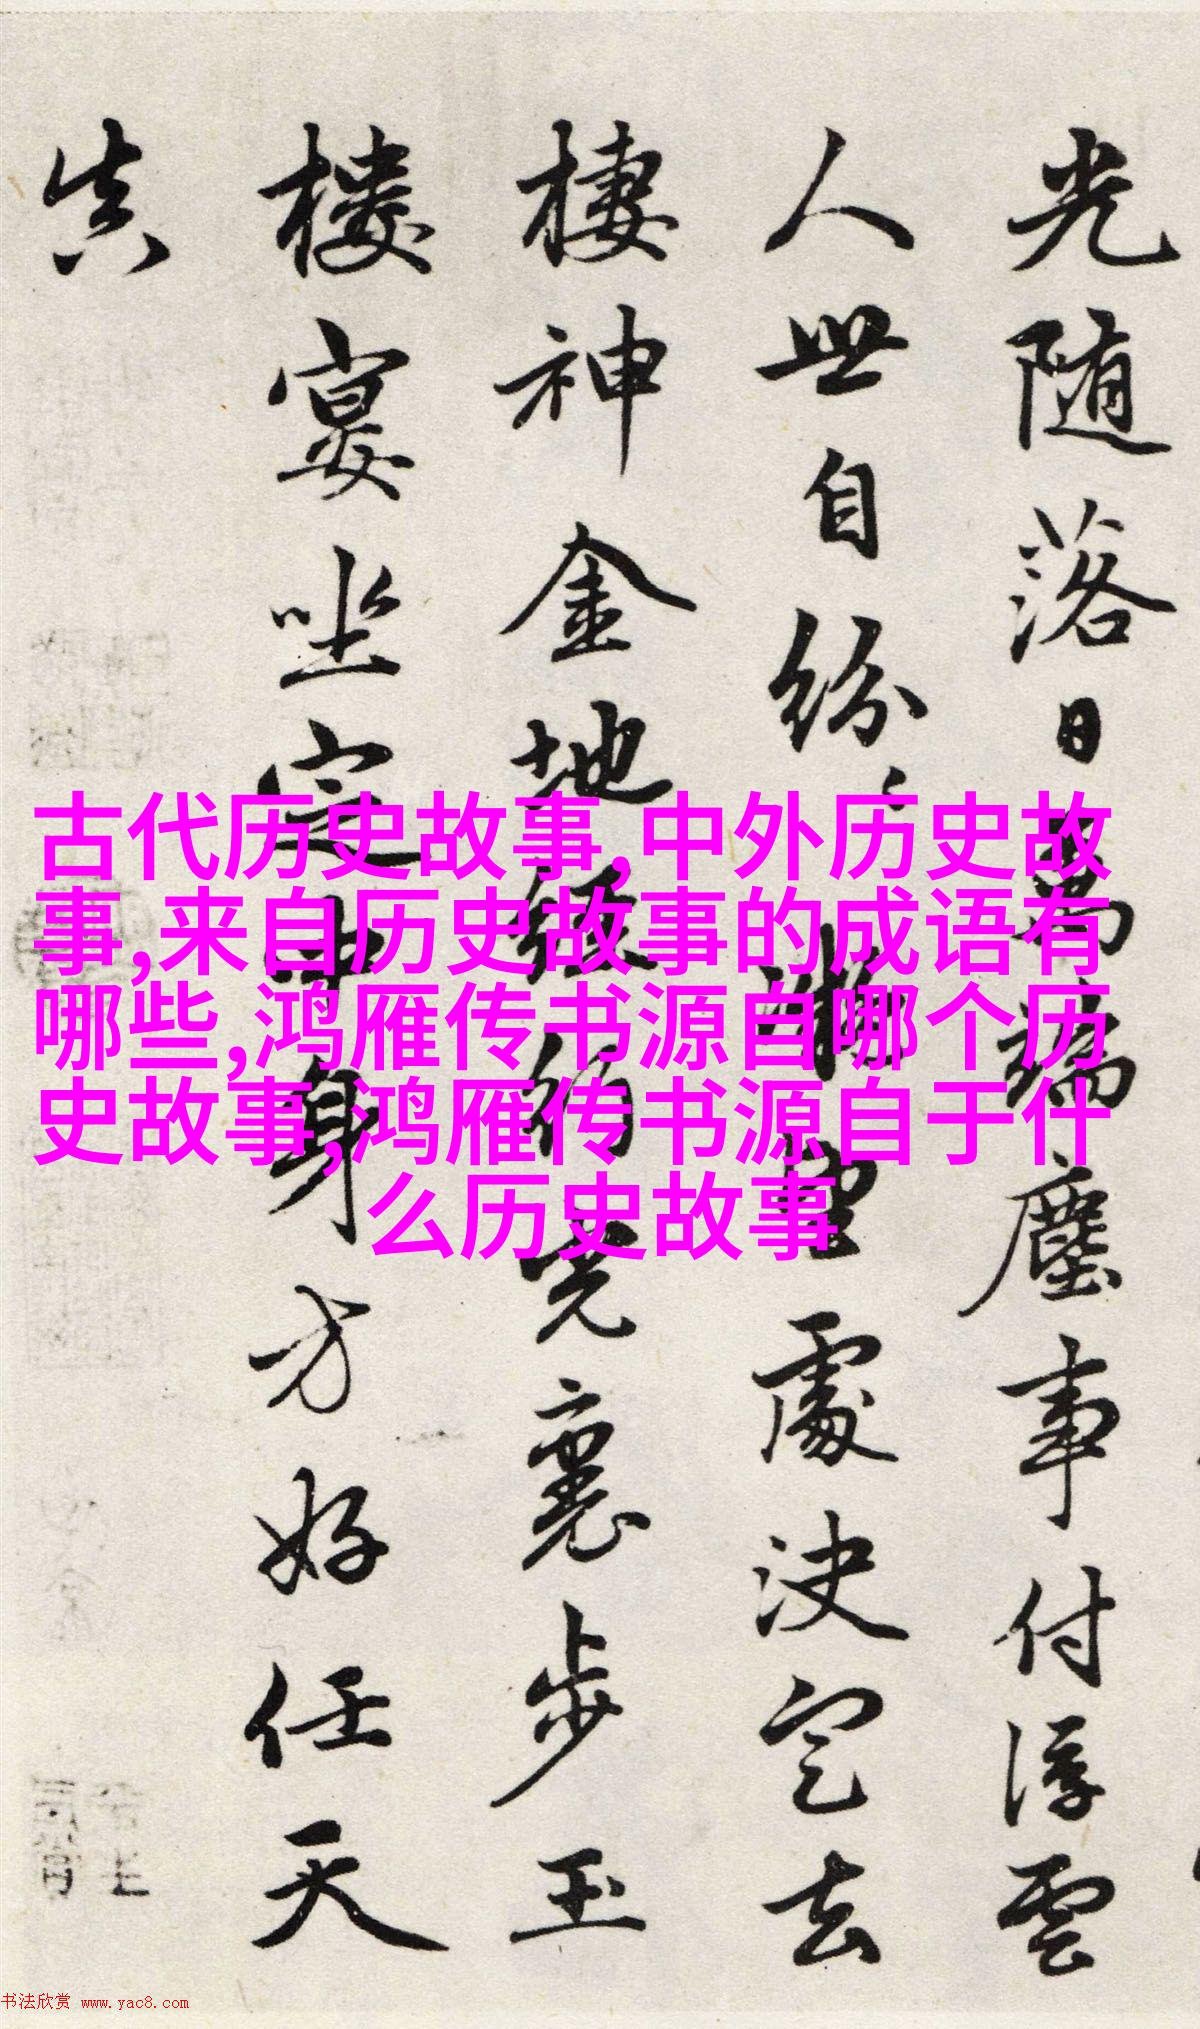 光随落日万端塵事付浮雲
人世自纷〻凝望處決定去
棲神金地经绡宪裏步玉
楼宴坐定中身方好任天
真
古代历史故事,中外历史故
事,来自历史故事的成语有
哪些,鸿雁传书源自哪个历
史故事,鸿雁传书源自于什
么历史故事
书法欣赏 www.yac8.com